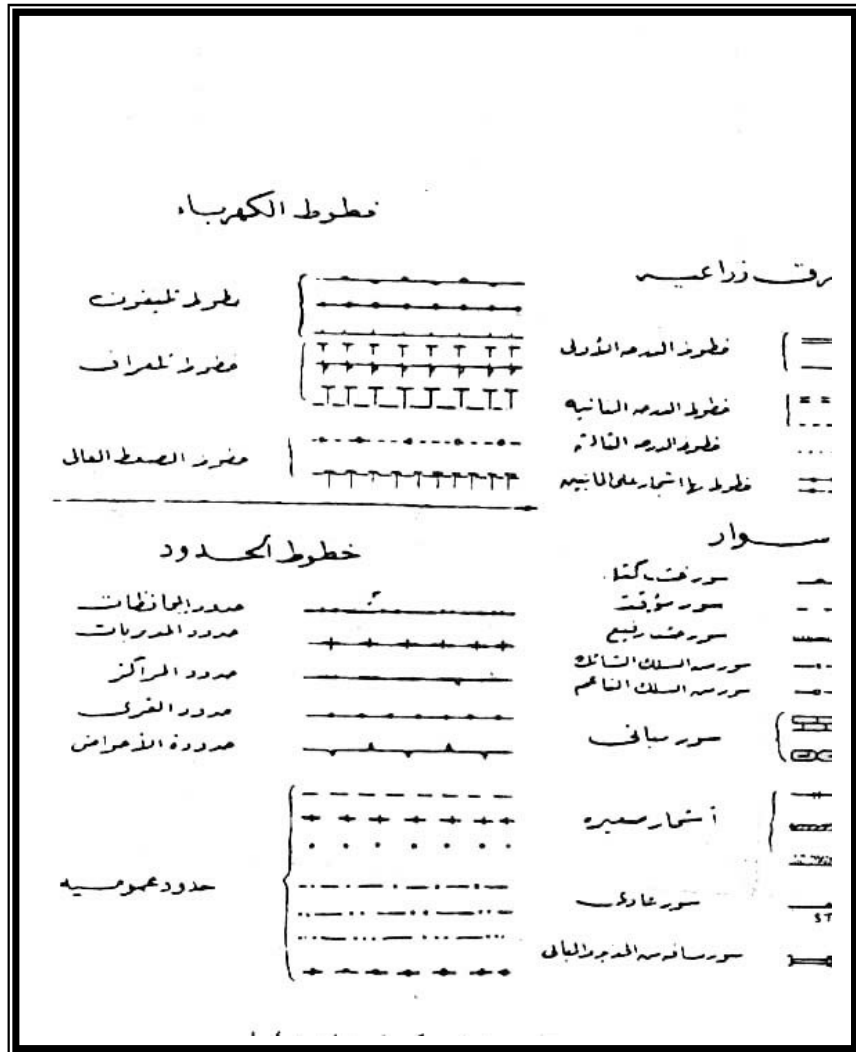 خطوط الكهرباء
خطوط تليفون
خطوط تلغراف
خطوط الضغط العالى
رق زراعيه
خطوط الدرجه الأولى
خطوط الدرجه الثانيه
خطوط الدرجه الثالثه
خطوط بها اشجار على الجانبين
خطوط الحدود
حدود المحافظات
حدود المديريات
حدود المراكز
حدود القرى
حدودة الأحواض
حدود عموميه
سوار
سور خشب
سور مؤقت
سور خشب رفيع
سور من السلك الشائك
سور من السلك الناعم
سور مبانى
أشجار صغيره
سور عادى
ST
سور من والمبانى